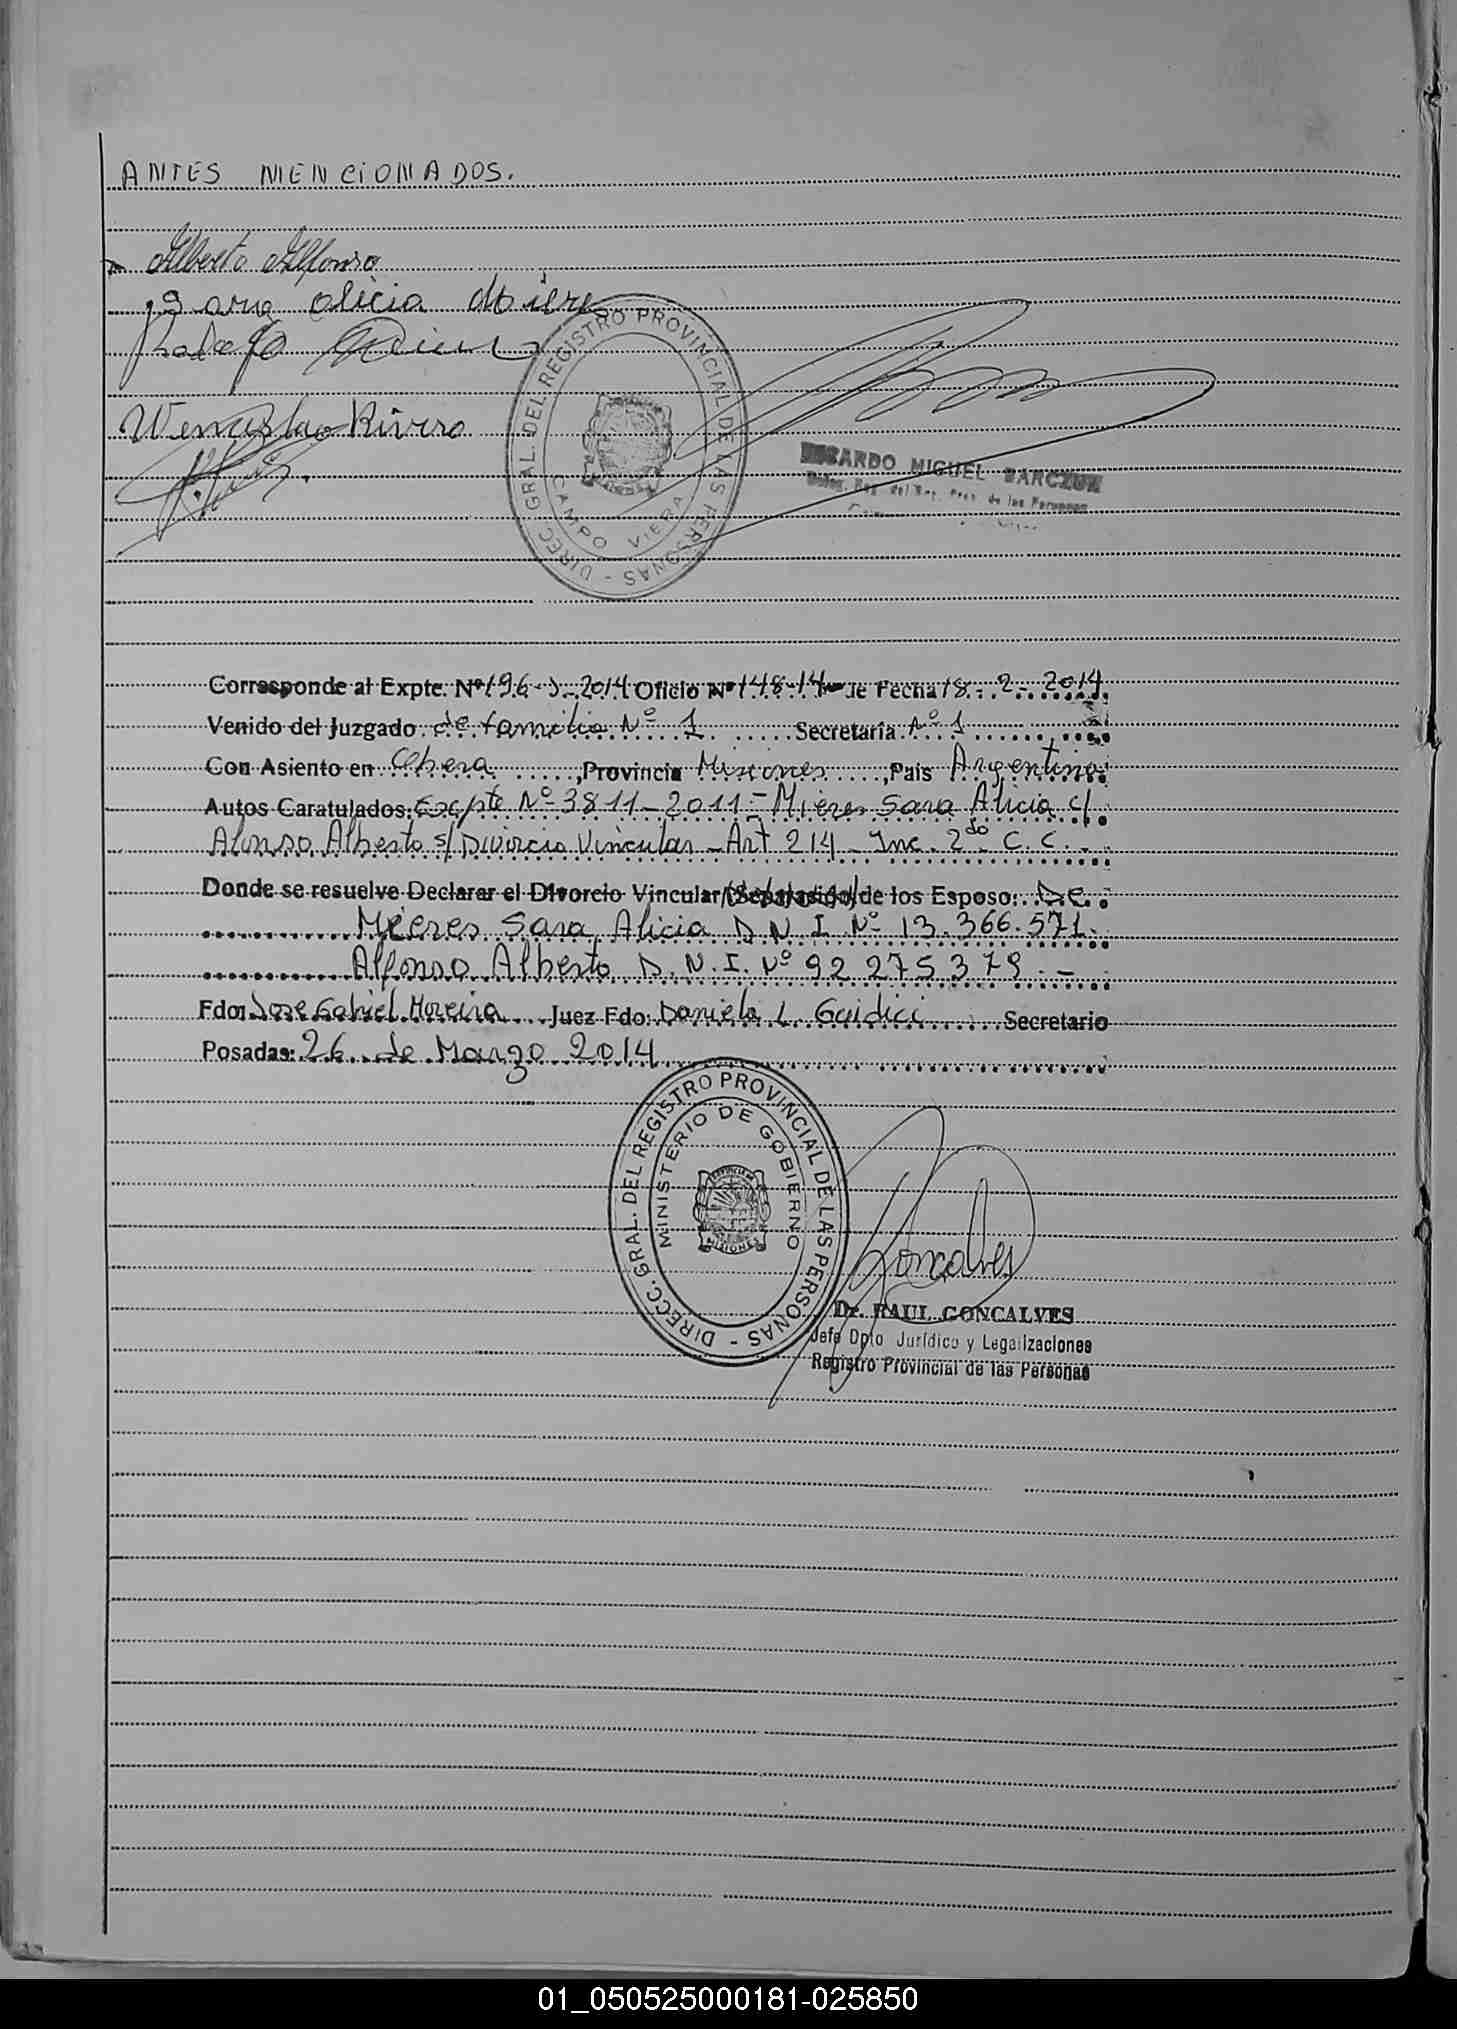 ANTES MENCIONADOS.
Alberto Alfonso
Sara alicia Miere
Wenceslao Rivero
DIREC. GRAL. DEL REGISTRO PROVINCIAL DE LAS PERSONAS -
CAMPO VIERA
MIGUEL BARCZUK
de las Personas
Corresponde al Expte. Nº 196-J-2014 Oficio Nº 148-14 de Fecha 18-2-2014
Venido del Juzgado de familia Nº 1 Secretaría Nº 1
Con Asiento en Obera, Provincia Misiones, Pais Argentina
Autos Caratulados: Excpte Nº 3811-2011- Mieres Sara Alicia c/
Alonso Alberto s/ Divorcio Vincular - Art 214 - Inc. 2do C. C. -
Donde se resuelve Declarar el Divorcio Vincular (Separación) de los Esposo: De
Mieres Sara Alicia D N I Nº 13.366.571.
Alfonso Alberto D.N.I. Nº 92 275 379. -
Fdo: Jose Gabriel Moreira Juez Fdo: Daniela L Guidici Secretario
Posadas: 26 de Marzo 2014
DIRECC. GRAL. DEL REGISTRO PROVINCIAL DE LAS PERSONAS -
MINISTERIO DE GOBIERNO
MISIONES
Goncalves
Dr. RAUL GONCALVES
Jefe Dpto Jurídico y Legalizaciones
Registro Provincial de las Personas
01_050525000181-025850